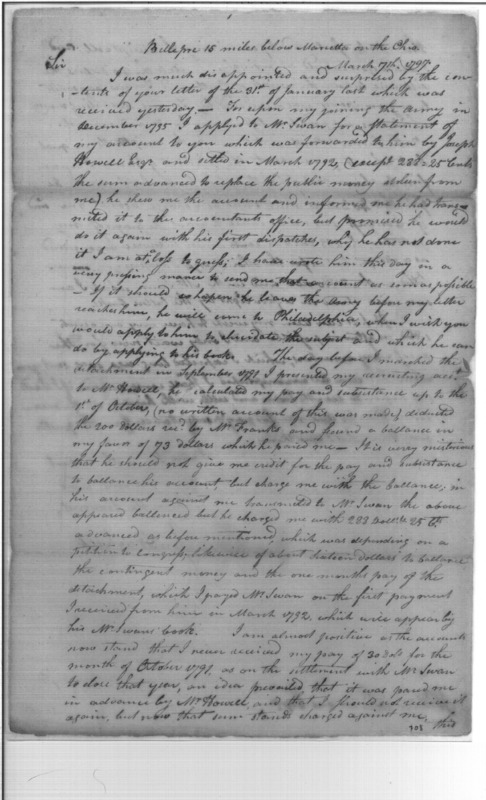 Bellepre 15 miles below Marietta on the Ohio
March 7th. 1797
Sir
I was much disappointed and surprised by the con-
-tents of your letter of the 31st. of January last which was
received yesterday. — For upon my joining the Army in
December 1795 I applyed to Mr. Swan for a statement of
my account to you which was forwarded to him by Joseph
Howell Esqr. and settled in March 1792, (except 283-25 Cents
the sum advanced to replace the public money stolen from
me) he shew me the account and informed me he had trans-
mited it to the accountants office, but promised he would
do it again with his first dispatches, why he has not done
it I am at loss to guess; I have wrote him this day in a
very pressing manner to send me that account as soon as possible
— If it should so happen he leaves the Army before my letter
reaches him, he will come to Philadelphia, when I wish you
would apply to him to elucidate the subject and which he can
do by applying to his book. The day before I marched the
detachment in September 1791 I presented my recruiting acct.
to Mr. Howell, he calculated my pay and subsistance up to the
1st. of October, (no written account of this was made) deducted
the 200 dollars recd by Mr. Franks and found a ballance in
my favor of 73 dollars which he paid me — It is very misterious
that he should not give me credit for the pay and subsistance
to ballance his account but charge me with the ballance; in
his account against me transmited to Mr. Swan the above
appeared ballenced but he charged me with 283 Dolls. 25 Cts
advanced as before mentioned, which was depending on a
petition to Congress, likewise of about sixteen dollars to ballance
the contingent money and the one months pay of the
detachment, which I payed Mr. Swan on the first payment
I received from him in March 1792, which will appear by
his Mr. Swans book. I am almost positive as the accounts
now stand that I never received my pay of 30 dols for the
month of October 1791, as on the settlement with Mr. Swan
to close that year, an idea prevailed, that it was paid me
in advance by Mr. Howell, and that I should not receive it
again, but now that sum stands charged against me,
this